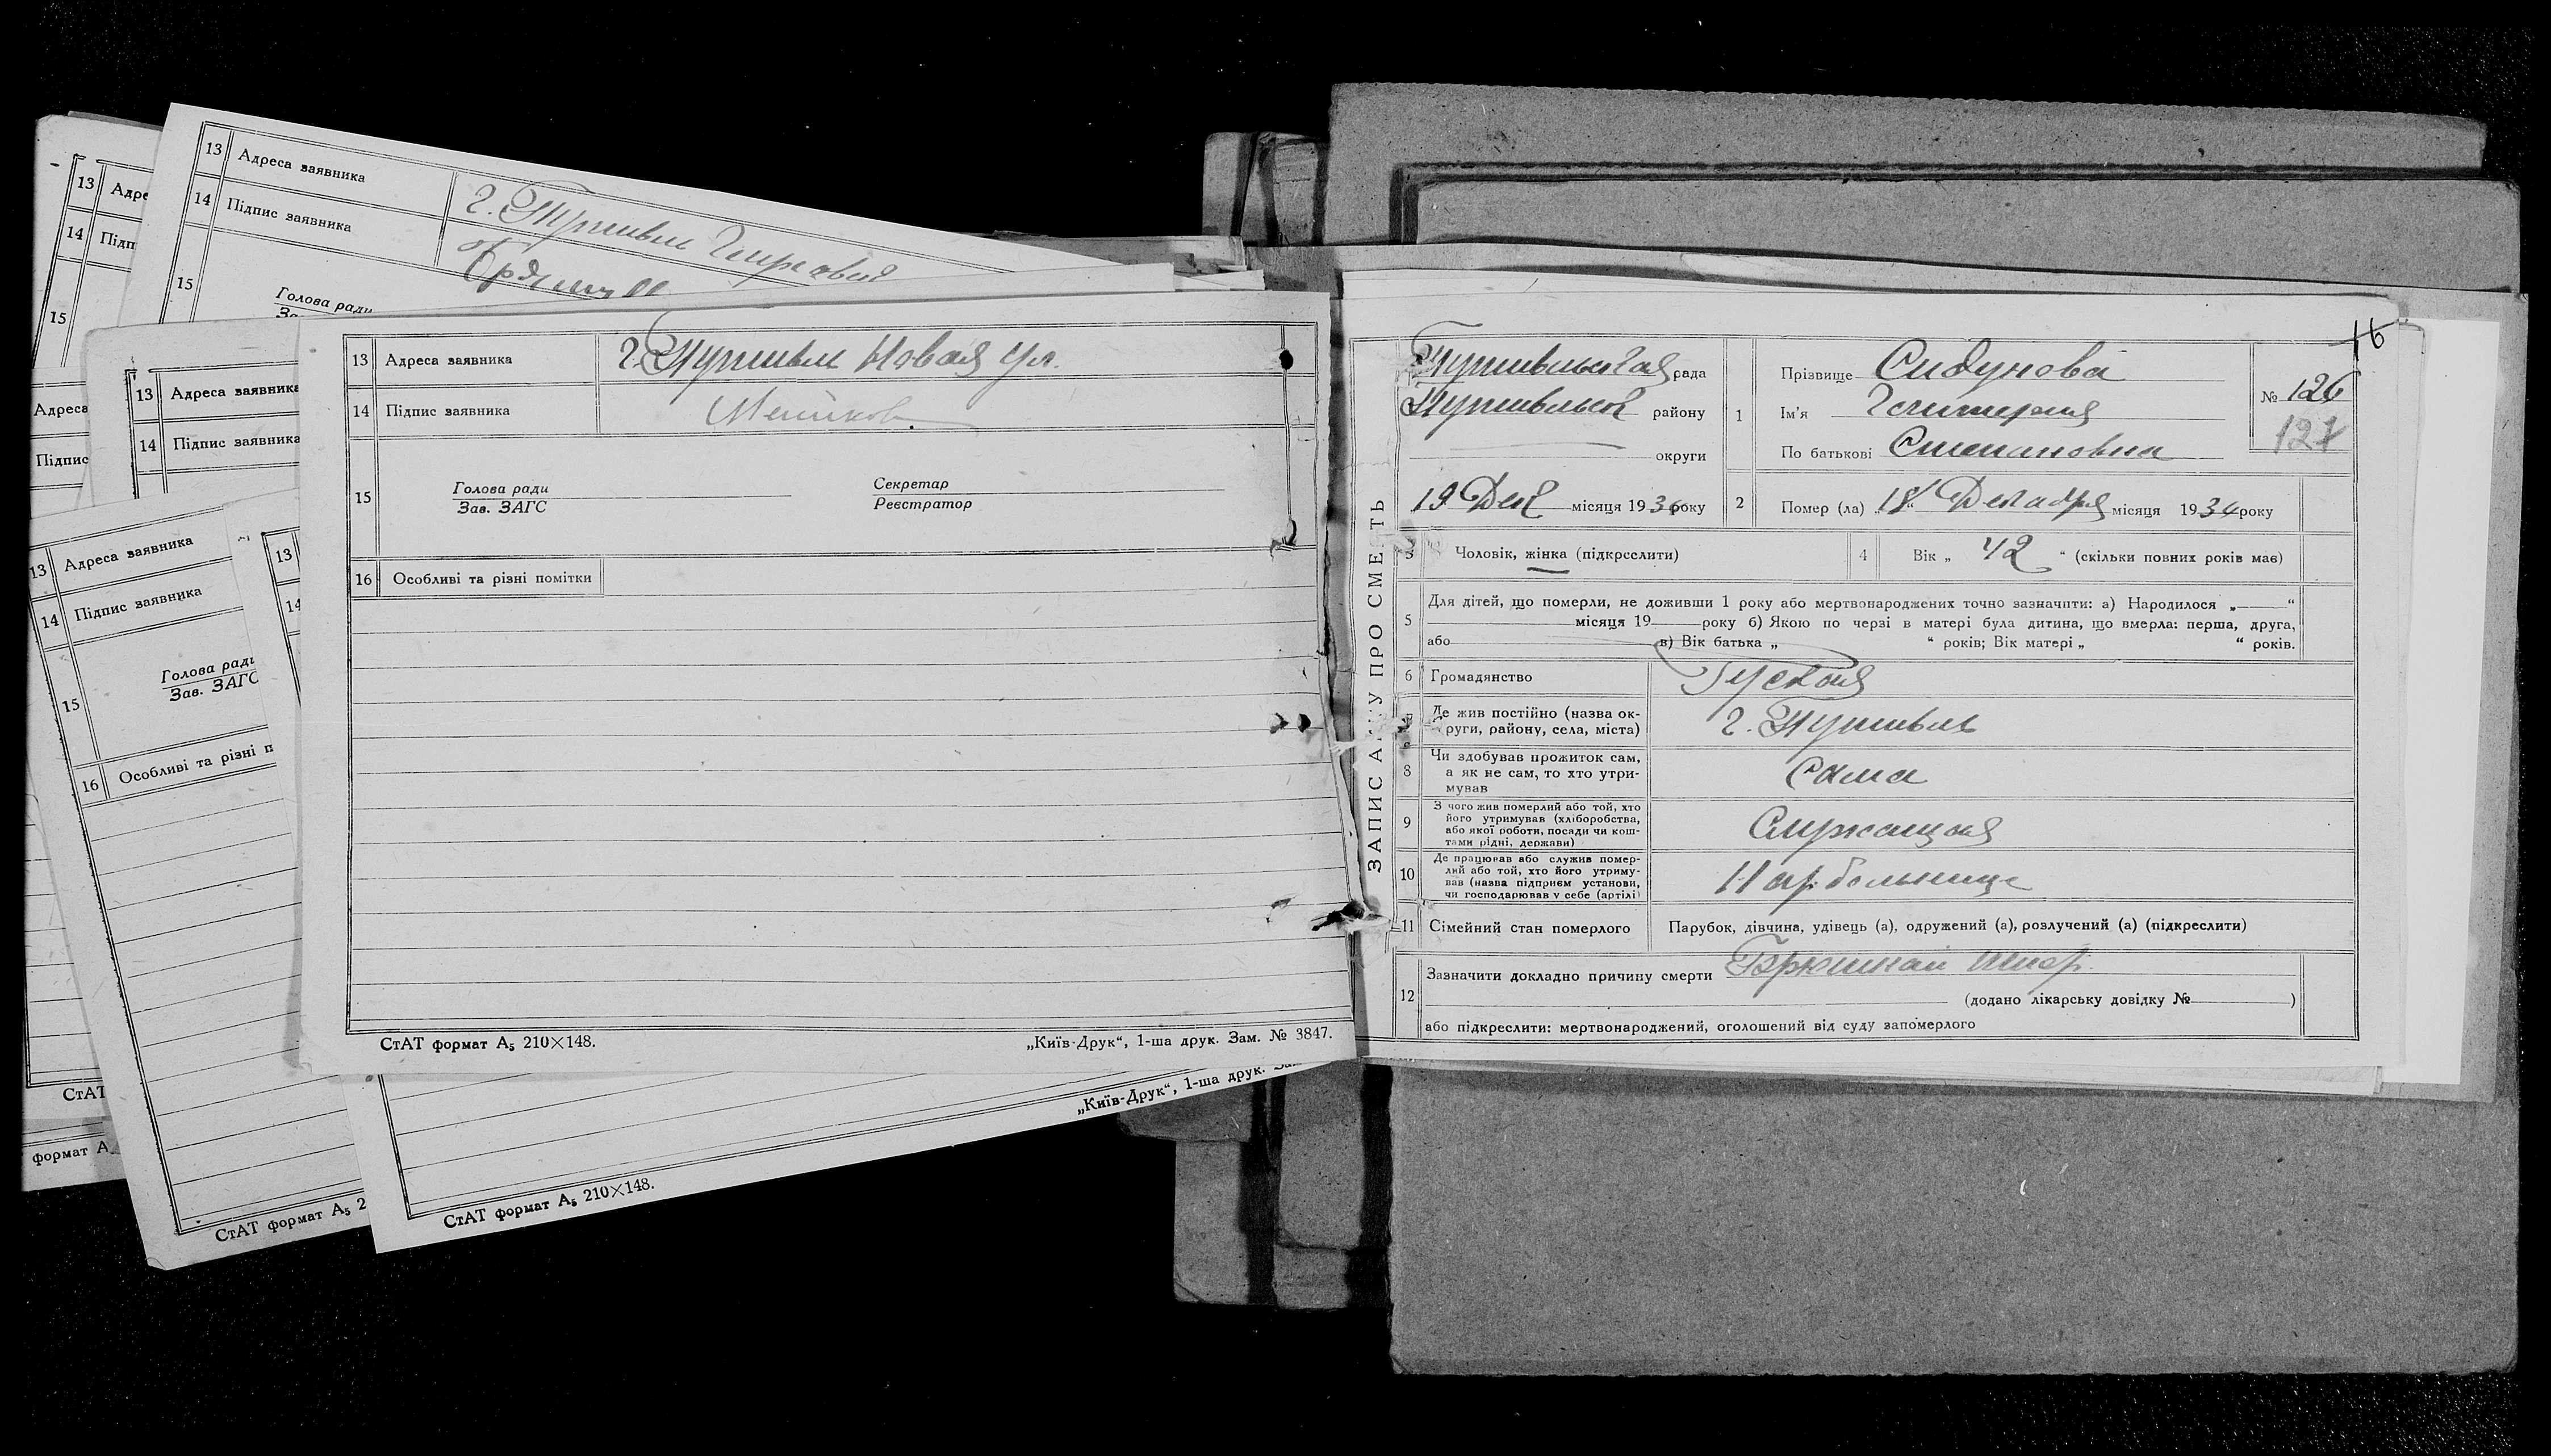 13 Адре
14 Підп
15
13 Адреса заявника г. Путивль
14 Підпис заявника
15
Голова ради
Адреса
Підпис
13 Адреса заявника
14 Підпис заявника
13 Адреса заявника
14 Підпис заявника
15
Голова ради
Зав. ЗАГС
16 Особливі та різні п
13
14
13 Адреса заявника г. Путивль Новая ул.
14 Підпис заявника
15
Голова ради
Зав. ЗАГС
Секретар
Реєстратор
16 Особливі та різні помітки
СтАТ формат А5 210×148.
„Київ-Друк“, 1-ша друк. Зам. № 3847.
СтАТ
формат А
СтАТ формат А5 2
СтАТ формат А5 210×148.
„Київ-Друк“, 1-ша друк.
16
ЗАПИС АКТУ ПРО СМЕРТЬ
Путивльская рада
Путивльск району
округи
19 Дек місяця 1934 року
1 Прізвище Сидунова
Ім'я
По батькові Степановна
№ 126
127
2 Помер (ла) „18“ Декабря місяця 1934 року
3 Чоловік, жінка (підкреслити)
4 Вік „ 42 “ (скільки повних років має)
5 Для дітей, що померли, не доживши 1 року або мертвонароджених точно зазначити: а) Народилося „ “
місяця 19 року б) Якою по черзі в матері була дитина, що вмерла: перша, друга,
або в) Вік батька „ “ років; Вік матері „ “ років.
6 Громадянство Руская
7 Де жив постійно (назва ок-
руги, району, села, міста) г. Путивль
8 Чи здобував прожиток сам,
а як не сам, то хто утри-
мував Сама
9 З чого жив померлий або той, хто
його утримував (хліборобства,
або якої роботи, посади чи кош-
тами рідні, держави) Служащая
10 Де працював або служив помер-
лий або той, хто його утриму-
вав (назва підприєм установи,
чи господарював у себе (артілі) Нар. больнице
11 Сімейний стан померлого Парубок, дівчина, удівець (а), одружений (а), розлучений (а) (підкреслити)
12 Зазначити докладно причину смерти Брюшной тиф.
(додано лікарську довідку № )
або підкреслити: мертвонароджений, оголошений від суду запомерлого